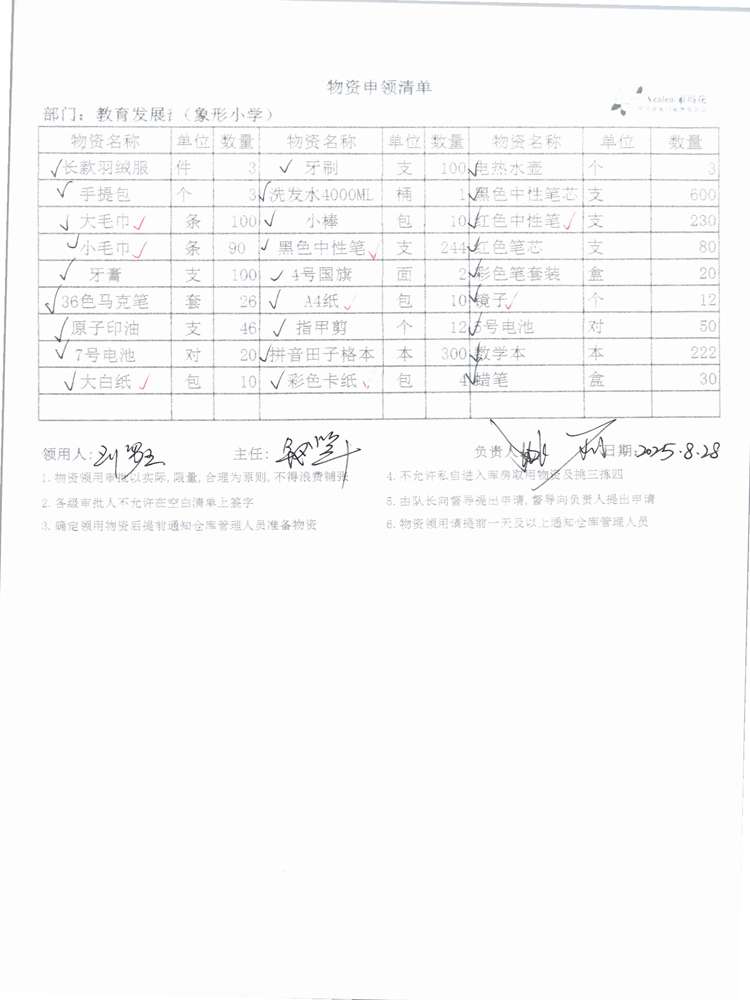 物资申领清单
部门：教育发展（象形小学）
物资名称 单位 数量 物资名称 单位 数量 物资名称 单位 数量
✓长款羽绒服 件 3 ✓牙刷 支 100 ✓电热水壶 个 3
✓手提包 个 3 ✓洗发水4000ML 桶 1 ✓黑色中性笔芯 支 600
✓大毛巾✓ 条 100 ✓小棒 包 10 ✓红色中性笔✓ 支 230
✓小毛巾✓ 条 90 ✓黑色中性笔✓ 支 244 ✓红色笔芯 支 80
✓牙膏 支 100 ✓4号国旗 面 2 ✓彩色笔套装 盒 20
✓36色马克笔 套 26 ✓A4纸✓ 包 10 ✓镜子✓ 个 12
✓原子印油 支 46 ✓指甲剪 个 12 ✓5号电池 对 50
✓7号电池 对 20 ✓拼音田子格本 本 300 ✓数学本 本 222
✓大白纸✓ 包 10 ✓彩色卡纸✓ 包 4 ✓蜡笔 盒 30
领用人: 主任: 负责人 日期:2025.8.28
1.物资领用审批以实际,限量,合理为原则,不得浪费铺张 4.不允许私自进入库房取用物资及挑三拣四
2.各级审批人不允许在空白清单上签字 5.由队长向督导提出申请,督导向负责人提出申请
3.确定领用物资后提前通知仓库管理人员准备物资 6.物资领用请提前一天及以上通知仓库管理人员